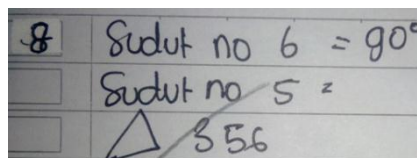 8 Sudut no 6 = 90°
Sudut no 5 =
△ 356